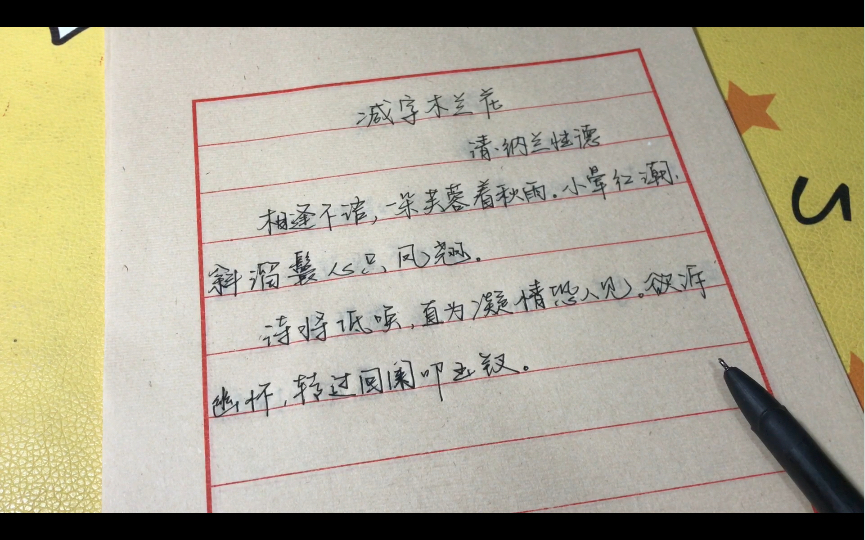 减字木兰花
清·纳兰性德
相逢不语,一朵芙蓉着秋雨。小晕红潮,
斜溜鬟心只凤翘。
待将低唤,直为凝情恐人见。欲诉
幽怀,转过回阑叩玉钗。